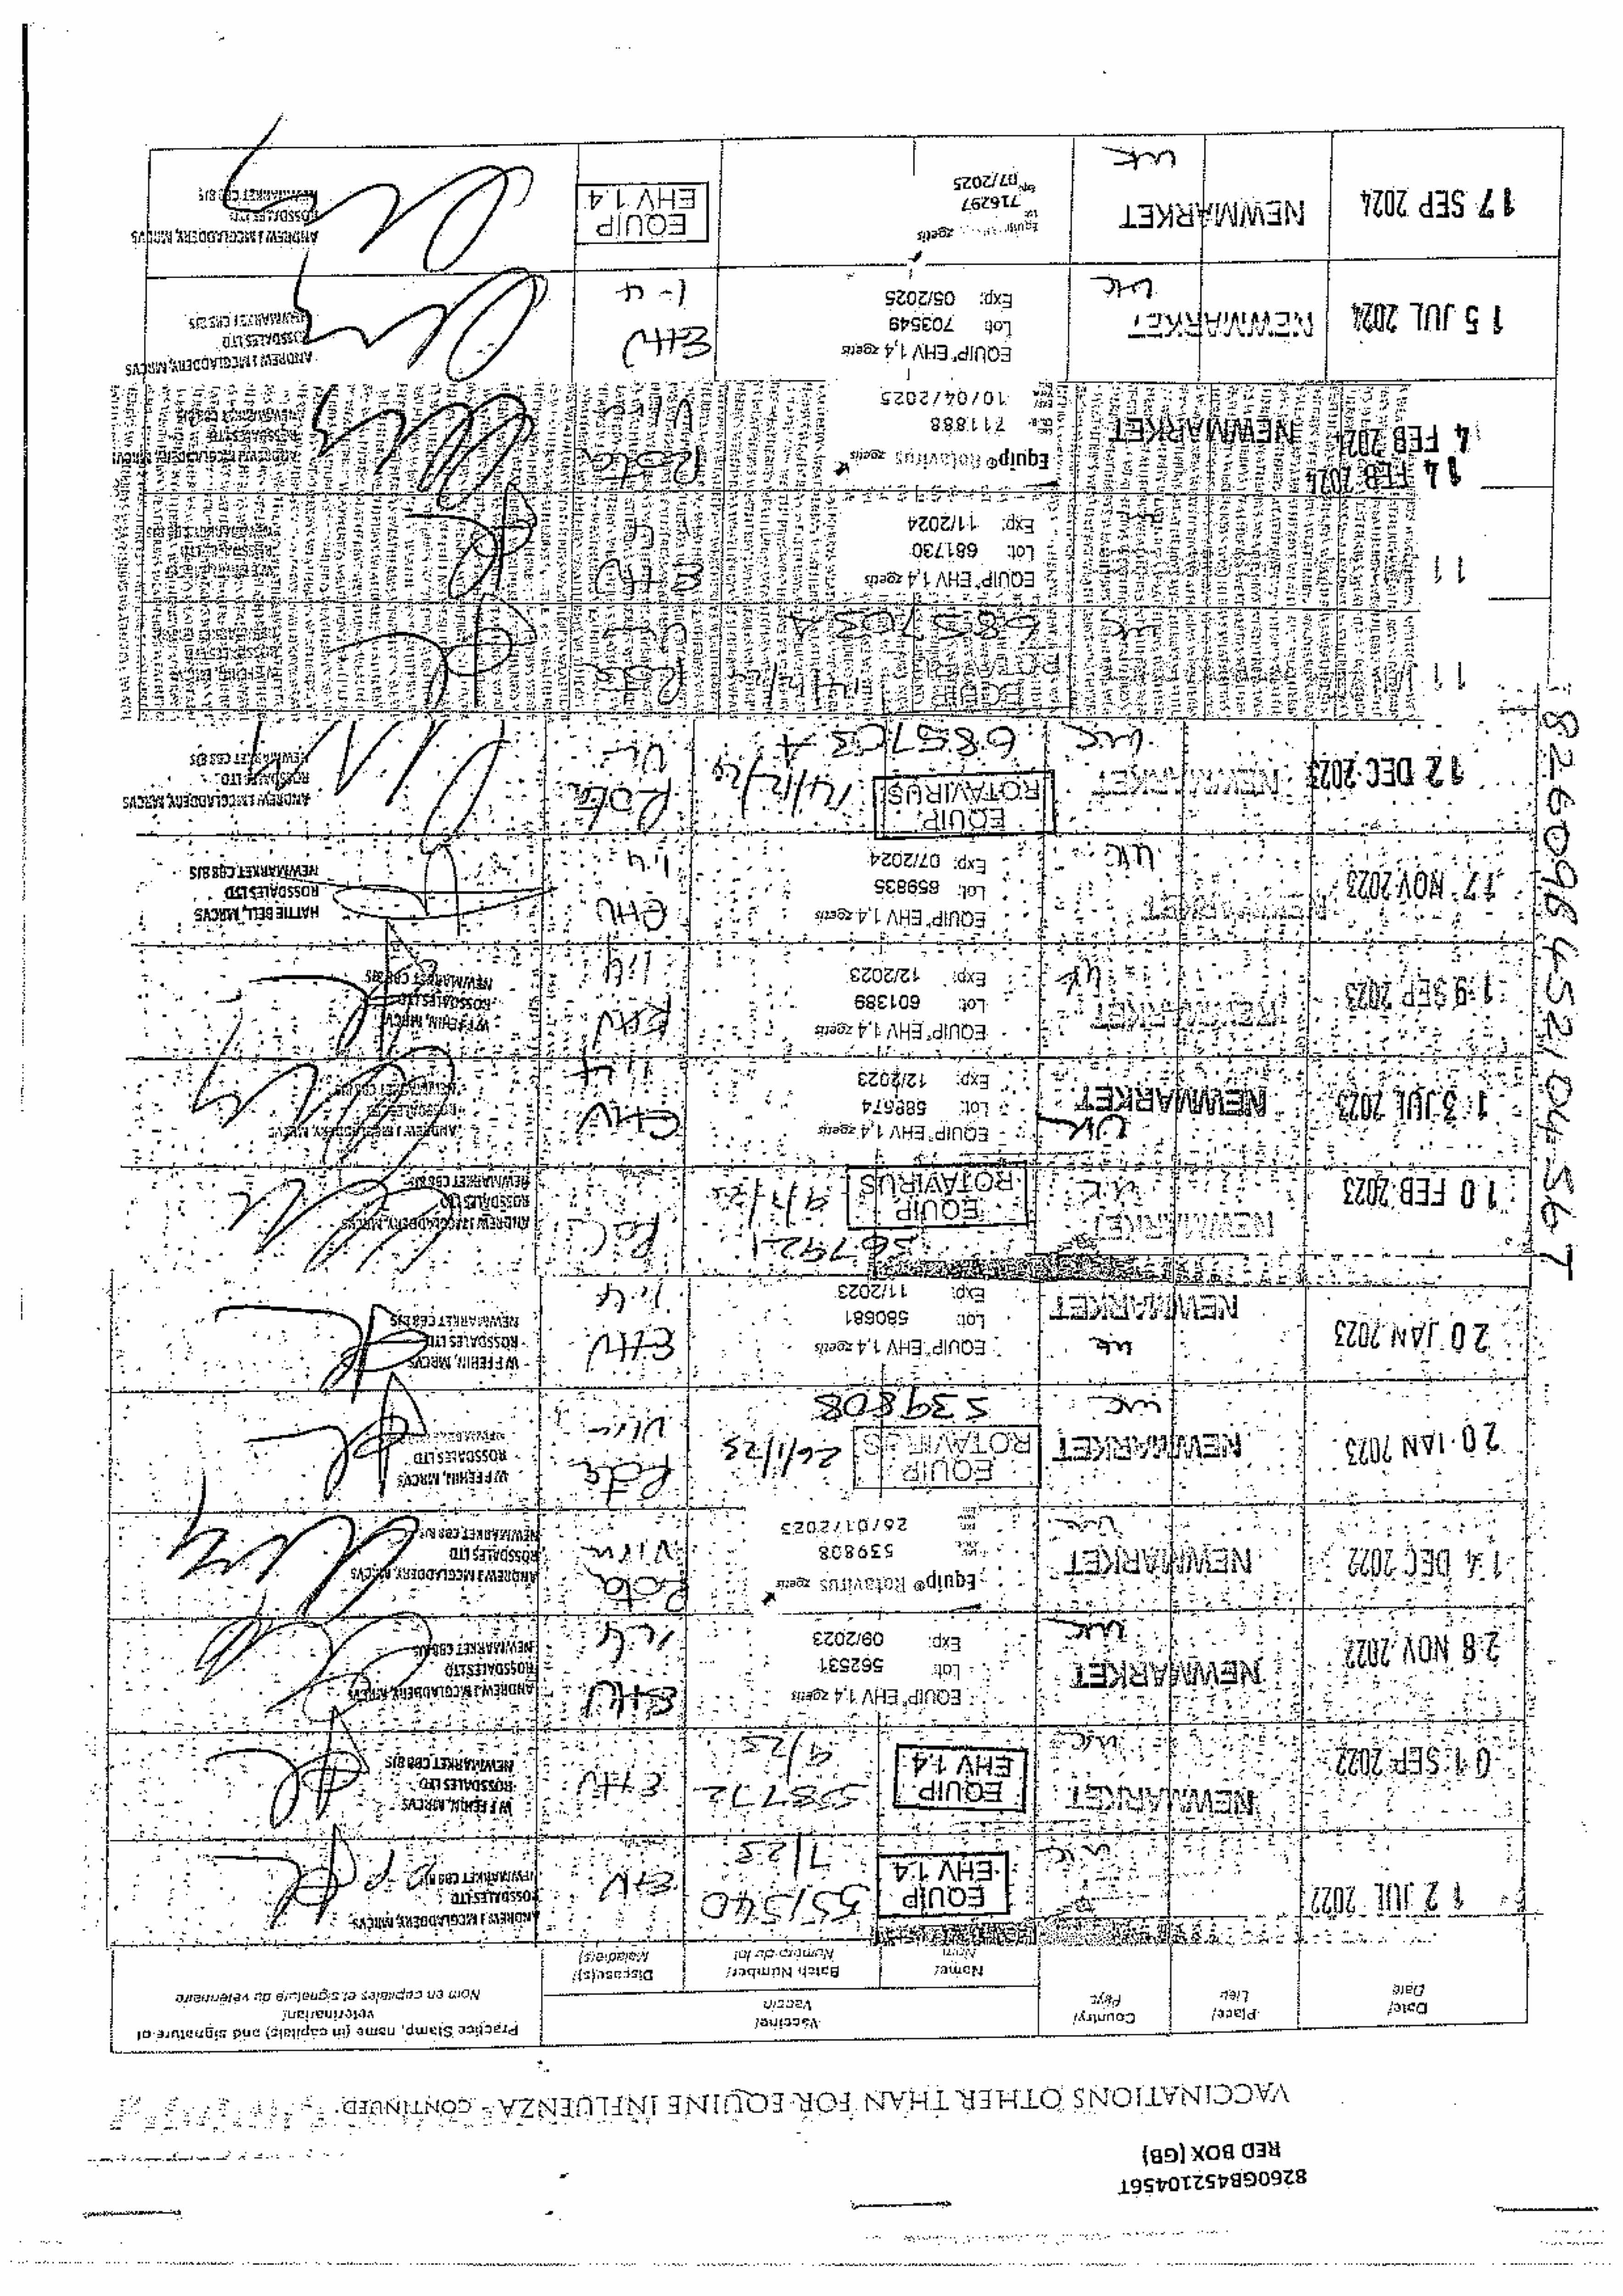 8260GB45210456T
RED BOX (GB)
VACCINATIONS OTHER THAN FOR EQUINE INFLUENZA - CONTINUED.
Date/
Date
Place/
Lieu
Country/
Pays
Vaccine/
Vaccin
Name/
Nom
Batch Number/
Numéro du lot
Disease(s)/
Maladie(s)
Practice Stamp, name (in capitals) and signature of
veterinarian/
Nom en capitales et signature du vétérinaire
12 JUL 2022
UK
EQUIP
EHV 1.4
551540
7/23
EHV
ANDREW J MCGLADDERY, MRCVS
ROSSDALES LTD
NEWMARKET CB8 8JS
PP
01 SEP 2022
NEWMARKET
UK
EQUIP
EHV 1.4
558772
9/23
EHV
W F FEHIN, MRCVS
ROSSDALES LTD
NEWMARKET CB8 8JS
28 NOV 2022
NEWMARKET
UK
EQUIP® EHV 1,4 zoetis
Lot: 562531
Exp: 09/2023
EHV
1.4
ANDREW J MCGLADDERY, MRCVS
ROSSDALES LTD
NEWMARKET CB8 8JS
14 DEC 2022
NEWMARKET
UK
Equip® Rotavirus zoetis
539808
26/01/2023
Rota
Virus
ANDREW J MCGLADDERY, MRCVS
ROSSDALES LTD
NEWMARKET CB8 8JS
20 JAN 2023
NEWMARKET
UK
EQUIP
ROTAVIRUS
26/1/23
539808
Rota
W F FEHIN, MRCVS
ROSSDALES LTD
20 JAN 2023
NEWMARKET
UK
EQUIP® EHV 1,4 zoetis
Lot: 580681
Exp: 11/2023
EHV
1.4
W F FEHIN, MRCVS
ROSSDALES LTD
NEWMARKET CB8 8JS
10 FEB 2023
NEWMARKET
UK
567921
EQUIP
ROTAVIRUS
ANDREW J MCGLADDERY, MRCVS
ROSSDALES LTD
NEWMARKET CB8 8JS
13 JUL 2023
NEWMARKET
UK
EQUIP® EHV 1,4 zoetis
Lot: 589674
Exp: 12/2023
EHV
1.4
ANDREW J MCGLADDERY, MRCVS
ROSSDALES LTD
NEWMARKET CB8 8JS
19 SEP 2023
NEWMARKET
UK
EQUIP® EHV 1,4 zoetis
Lot: 601389
Exp: 12/2023
EHV
1.4
W F FEHIN, MRCVS
ROSSDALES LTD
NEWMARKET CB8 8JS
17 NOV 2023
NEWMARKET
UK
EQUIP® EHV 1,4 zoetis
Lot: 659835
Exp: 07/2024
EHV
1.4
HATTIE BELL, MRCVS
ROSSDALES LTD
NEWMARKET CB8 8JS
12 DEC 2023
NEWMARKET
UK
EQUIP
ROTAVIRUS
14/12/24
685703A
Rota
ANDREW J MCGLADDERY, MRCVS
ROSSDALES LTD
NEWMARKET CB8 8JS
11
UK
EQUIP
ROTAVIRUS
685703A
Rota
11
EQUIP® EHV 1,4 zoetis
Lot: 681730
Exp: 11/2024
EHV
14 FEB 2024
4 FEB 2024
NEWMARKET
Equip® Rotavirus zoetis
711888
10/04/2025
Rota
ANDREW J MCGLADDERY, MRCVS
ROSSDALES LTD
NEWMARKET CB8 8JS
15 JUL 2024
NEWMARKET
UK
EQUIP® EHV 1,4 zoetis
Lot: 703549
Exp: 05/2025
EHV
1-4
ANDREW J MCGLADDERY, MRCVS
ROSSDALES LTD
NEWMARKET CB8 8JS
17 SEP 2024
NEWMARKET
UK
Equip zoetis
716297
07/2025
EQUIP
EHV 1.4
ANDREW J MCGLADDERY, MRCVS
ROSSDALES LTD
NEWMARKET CB8 8JS